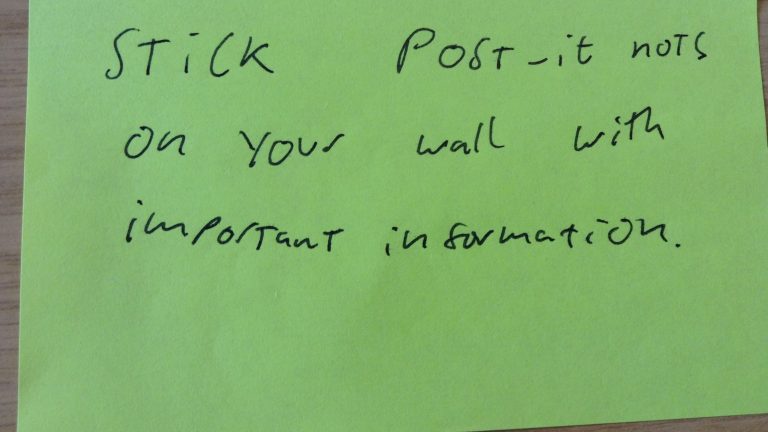 STiCK POST-it nots
on your wall with
important information.